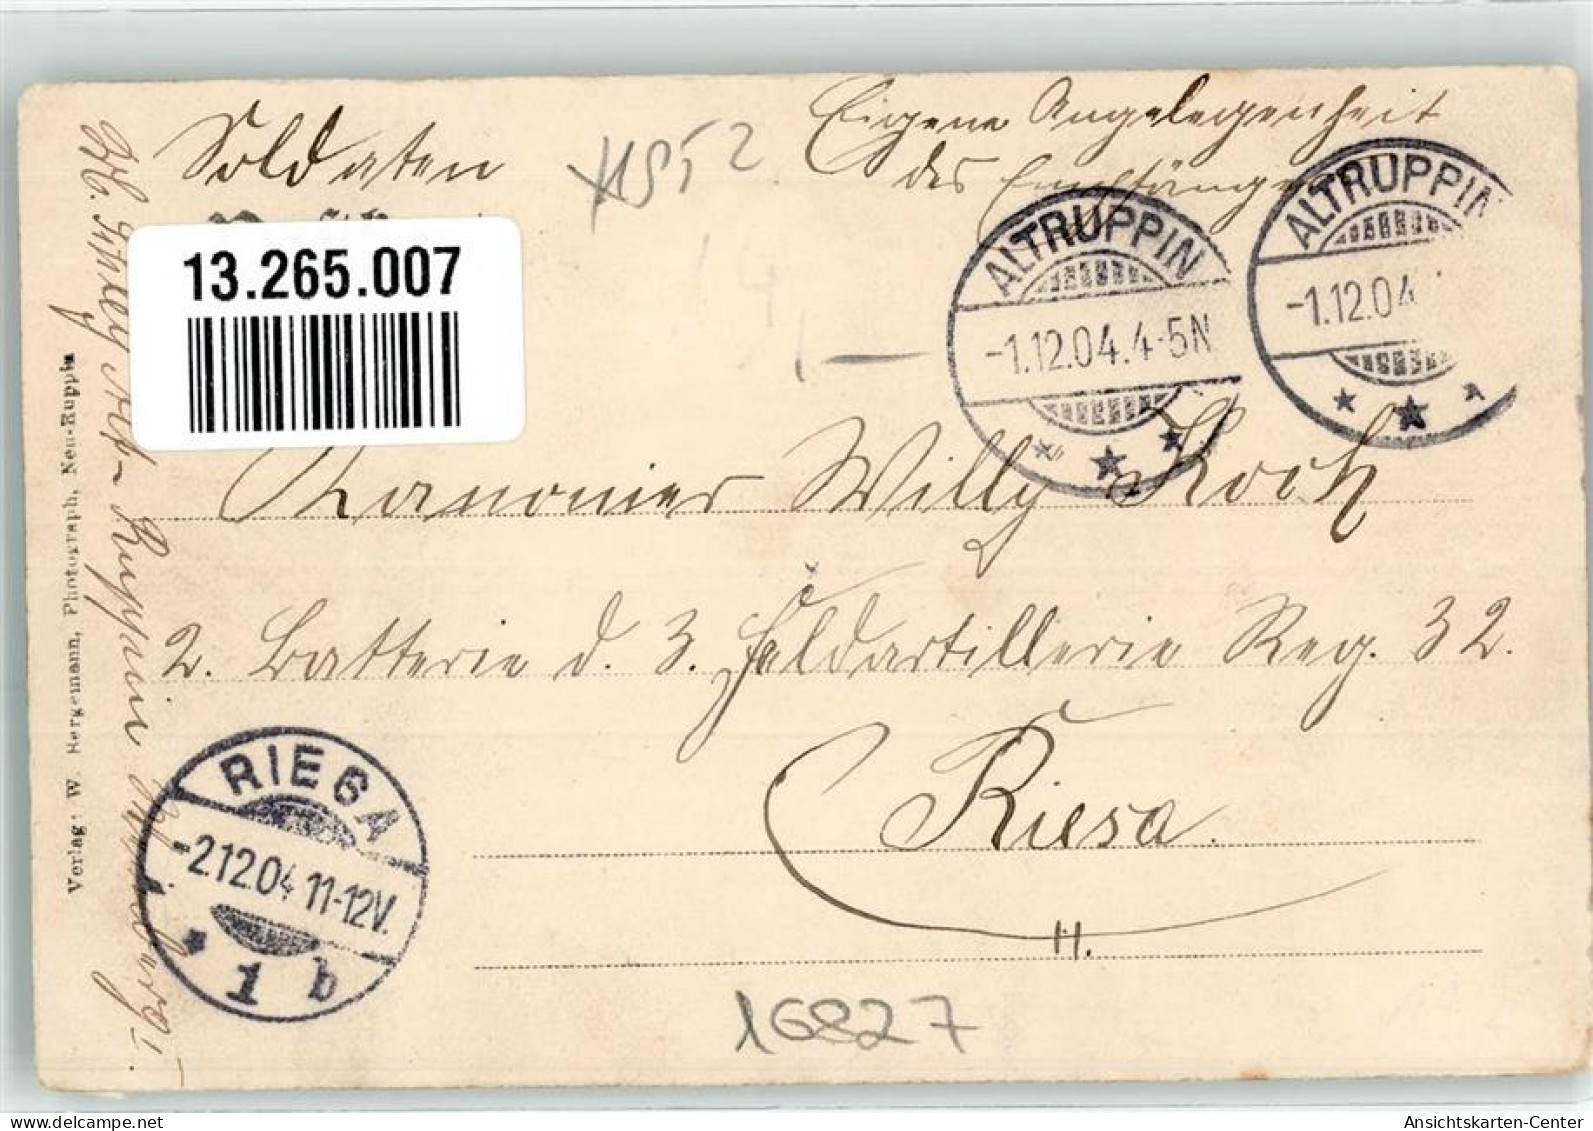 Soldaten
Eigene Angelegenheit
des Empfängers
11552
13.265.007
ALTRUPPIN
-1.12.04.4-5N
ALTRUPPIN
-1.12.04
Kanonier Willy Koch
2. Batterie d. 3. Feldartillerie Reg. 32.
Riesa.
RIESA
-2.12.04 11-12V.
1 b
H.
16827
Verlag: W. Bergemann, Photograph, Neu-Ruppin
Alt-Ruppin
Ansichtskarten-Center